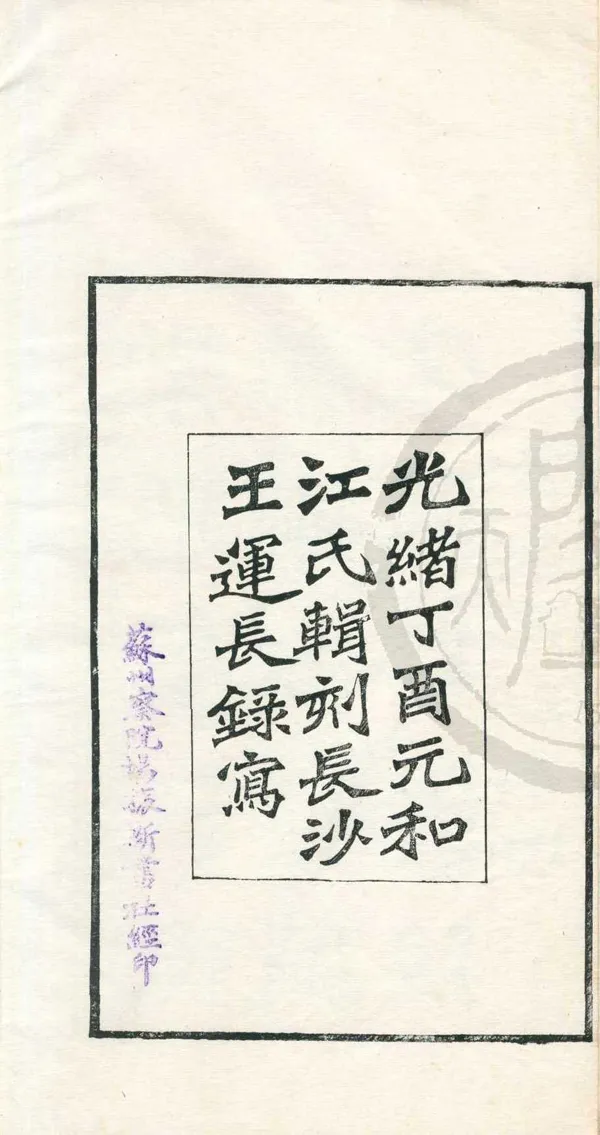 光緒丁酉元和
江氏輯刻長沙
王運長錄寫
蘇州察院場振新書社經印